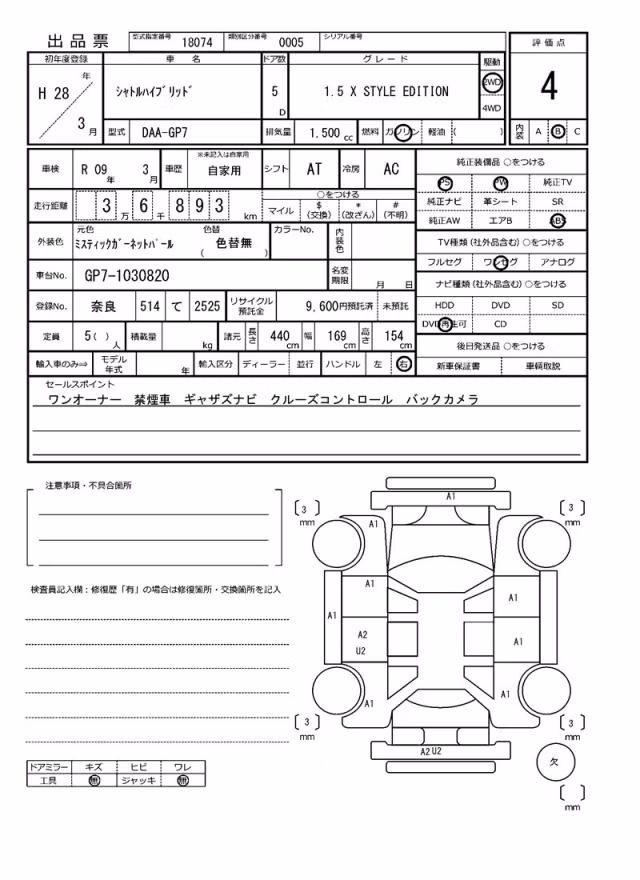 出品票 型式指定番号 18074 類別区分番号 0005 シリアル番号
初年度登録 車 名 ドア数 グレード 駆動 評価点
H 28 年 3 月 シャトルハイブリッド 5 D 1.5 X STYLE EDITION 2WD 4WD 4
型式 DAA-GP7 排気量 1.500 cc 燃料 ガソリン 軽油 ( ) 内装 A B C
車検 R 09 年 3 月 車歴 ※未記入は自家用 自家用 シフト AT 冷房 AC 純正装備品 ○をつける
PS PW 純正TV
走行距離 3 万 6 千 8 9 3 km ○をつける
マイル $ (交換) * (改ざん) # (不明)
純正ナビ 革シート SR
純正AW エアB ABS
外装色 元色 ミスティックガーネットパール 色替 ( 色替無 ) カラーNo. 内装色
TV種類 (社外品含む) ○をつける
フルセグ ワンセグ アナログ
車台No. GP7-1030820 名変期限 月 日
ナビ種類 (社外品含む) ○をつける
登録No. 奈良 514 て 2525 リサイクル預託金 9,600円預託済 未預託
HDD DVD SD
DVD再生可 CD
定員 5( ) 人 積載量 kg 諸元 長さ 440 cm 幅 169 cm 高さ 154 cm
後日発送品 ○をつける
輸入車のみ⇒ モデル年式 年 輸入区分 ディーラー 並行 ハンドル 左 右
新車保証書 車輌取説
セールスポイント
ワンオーナー 禁煙車 ギャザズナビ クルーズコントロール バックカメラ
注意事項・不具合箇所
検査員記入欄：修復歴「有」の場合は修復箇所・交換箇所を記入
A1
3 mm A1 3 mm
A1 A1
A1 A2 U2 A1
A1 A1
3 mm 3 mm
A2 U2
欠
mm
ドアミラー キズ ヒビ ワレ
工具 無 ジャッキ 無